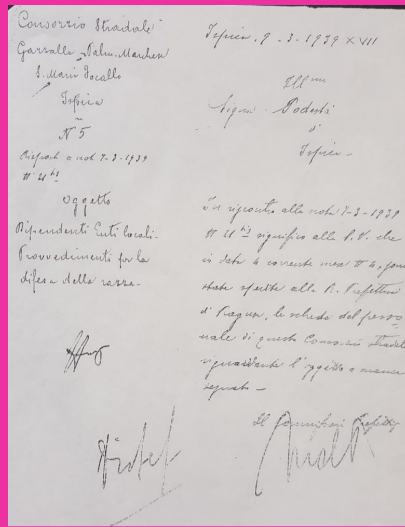 Consorzio Stradale
Garzalla - Palm. Marchesa
S. Maria Focallo
Ispica
N° 5
Risposta a nota 7-3-1939
Oggetto
Dipendenti Enti locali -
Provvedimenti per la
difesa della razza -
Ispica, 9 - 3 - 1939 XVII
Ill mo
Signor Podestà
di
Ispica -
In riscontro alla nota 7-3-1939
significo alla S. V. che
in data 4 corrente mese N° 4, sono
state spedite alla R. Prefettura
di Ragusa, le schede del perso
nale di questo Consorzio stradale
riguardante l'oggetto a manca
segnato -
Il Commissario Prefettizio